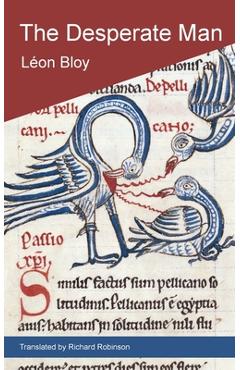 The Desperate Man
Léon Bloy
De Pelli
cani.
catio:
Passio
xp̄i.
Similis factus sum pellicano so
litudinis. Pellicanus ē egyptia
auis. habitans in solitudine nili flu
Translated by Richard Robinson